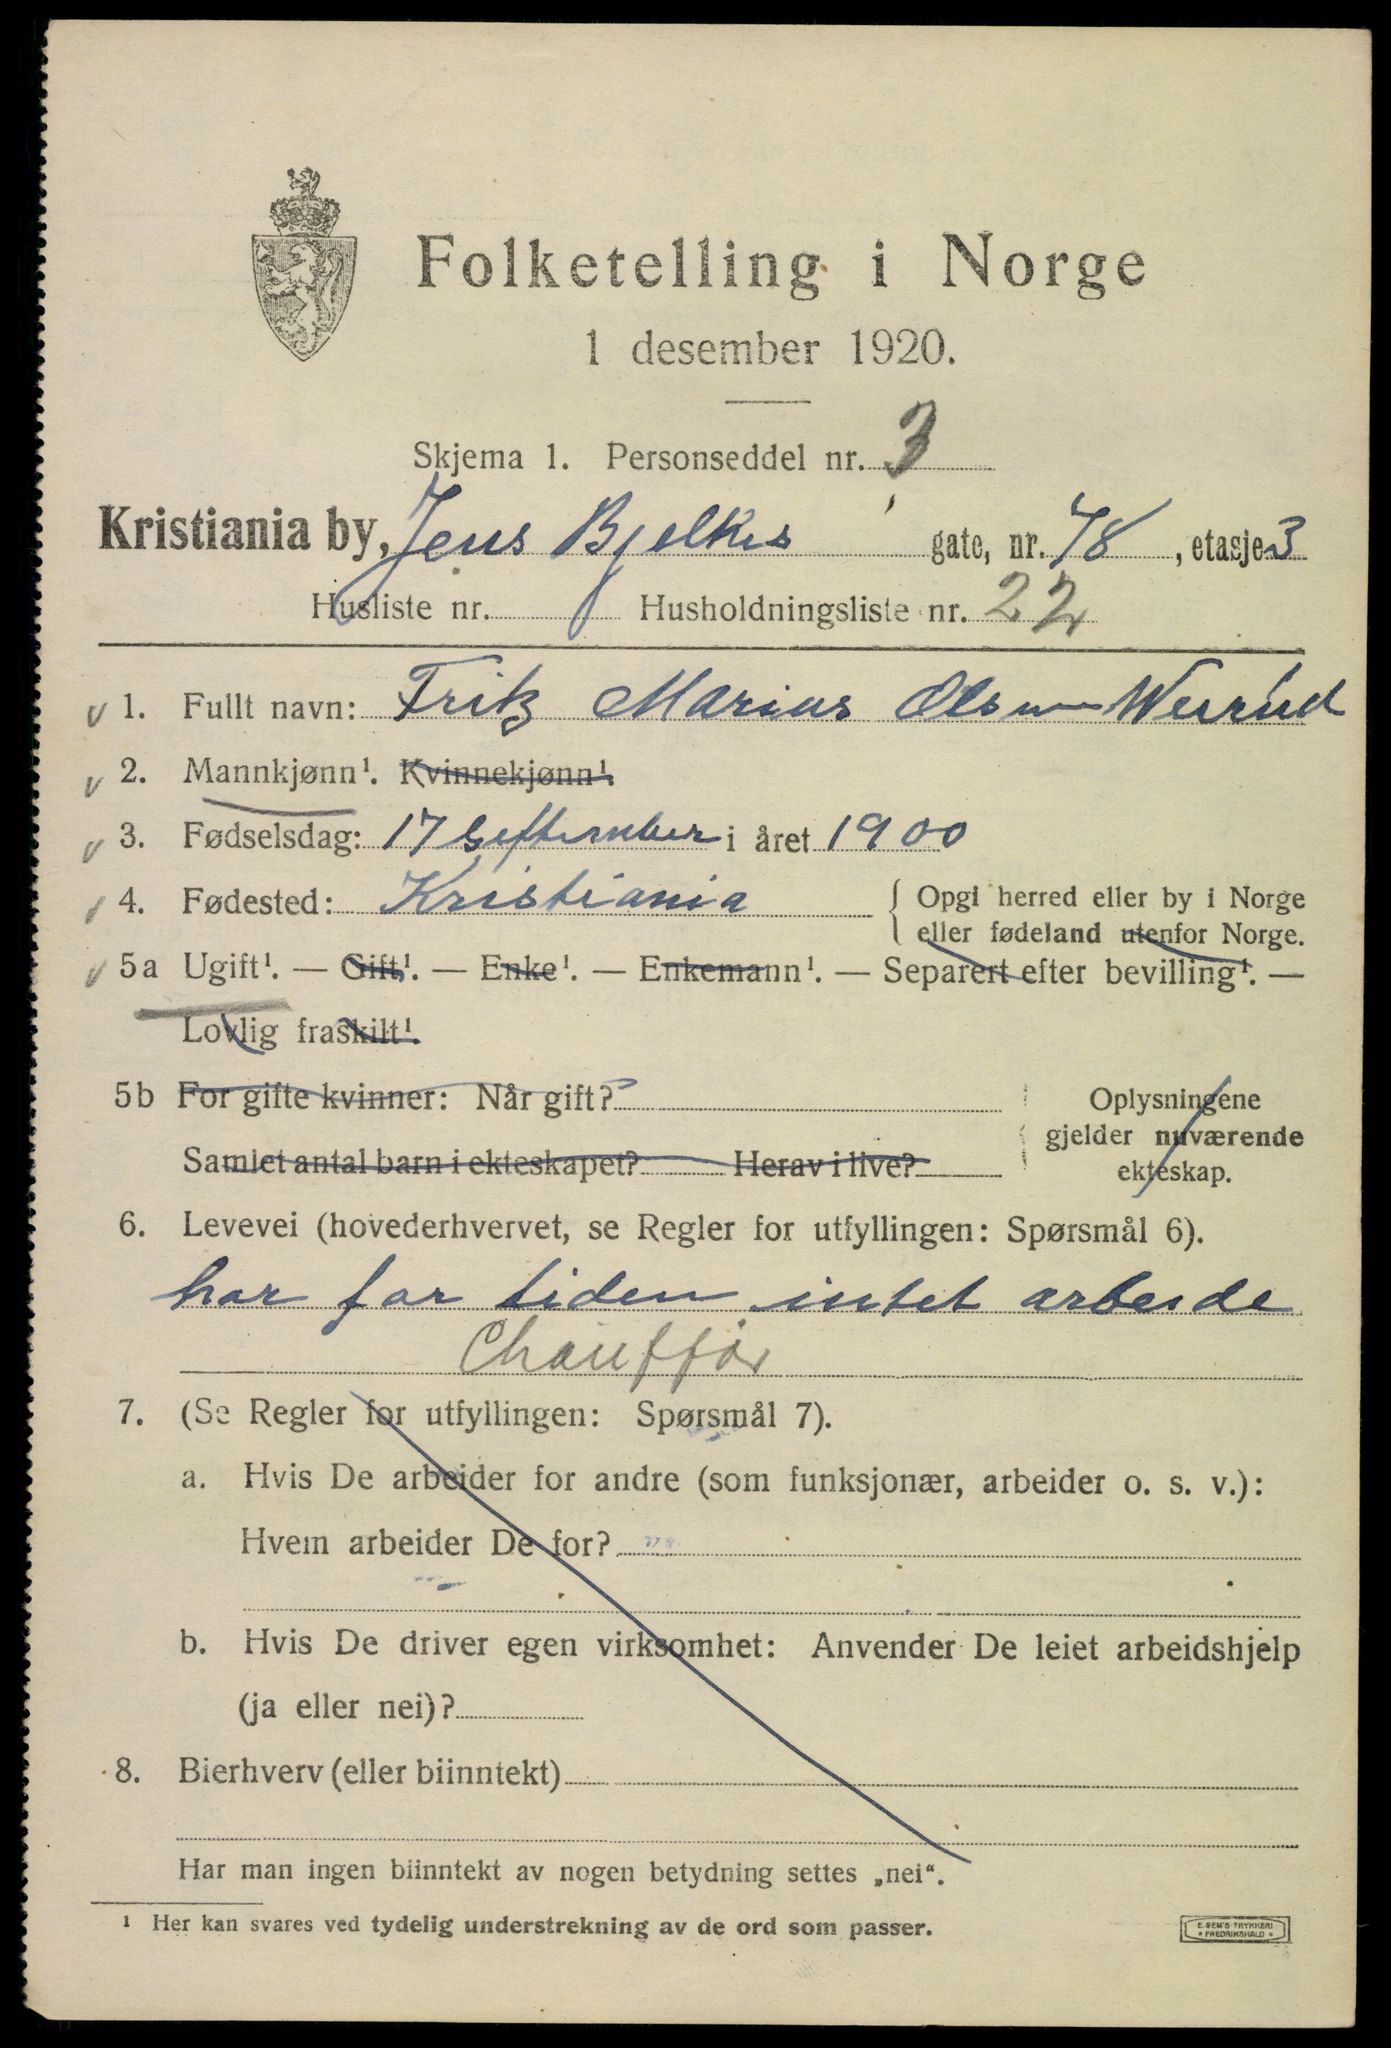 Folketelling i Norge
1 desember 1920.
Skjema 1. Personseddel nr. 3
Kristiania by, Jens Bjelkes gate, nr. 78, etasje 3
Husliste nr. Husholdningsliste nr. 22
v 1. Fullt navn: Fritz Marius Olsen Werrud
v 2. Mannkjønn¹. Kvinnekjønn¹.
v 3. Fødselsdag: 17 September i året 1900
4. Fødested: Kristiania { Opgi herred eller by i Norge
eller fødeland utenfor Norge.
v 5a Ugift¹. — Gift¹. — Enke¹. — Enkemann¹. — Separert efter bevilling¹. —
Lovlig fraskilt¹.
5b For gifte kvinner: Når gift? Oplysningene
gjelder nuværende
Samlet antal barn i ekteskapet? Herav i live?
ekteskap.
6. Levevei (hovederhvervet, se Regler for utfyllingen: Spørsmål 6).
har for tiden intet arbeide
Chauffør
7. (Se Regler for utfyllingen: Spørsmål 7).
a. Hvis De arbeider for andre (som funksjonær, arbeider o. s. v.):
Hvem arbeider De for?
b. Hvis De driver egen virksomhet: Anvender De leiet arbeidshjelp
(ja eller nei)?
8. Bierhverv (eller biinntekt)
Har man ingen biinntekt av nogen betydning settes „nei“.
¹ Her kan svares ved tydelig understrekning av de ord som passer.
E. SEM'S TRYKKERI
• FREDRIKSHALD •